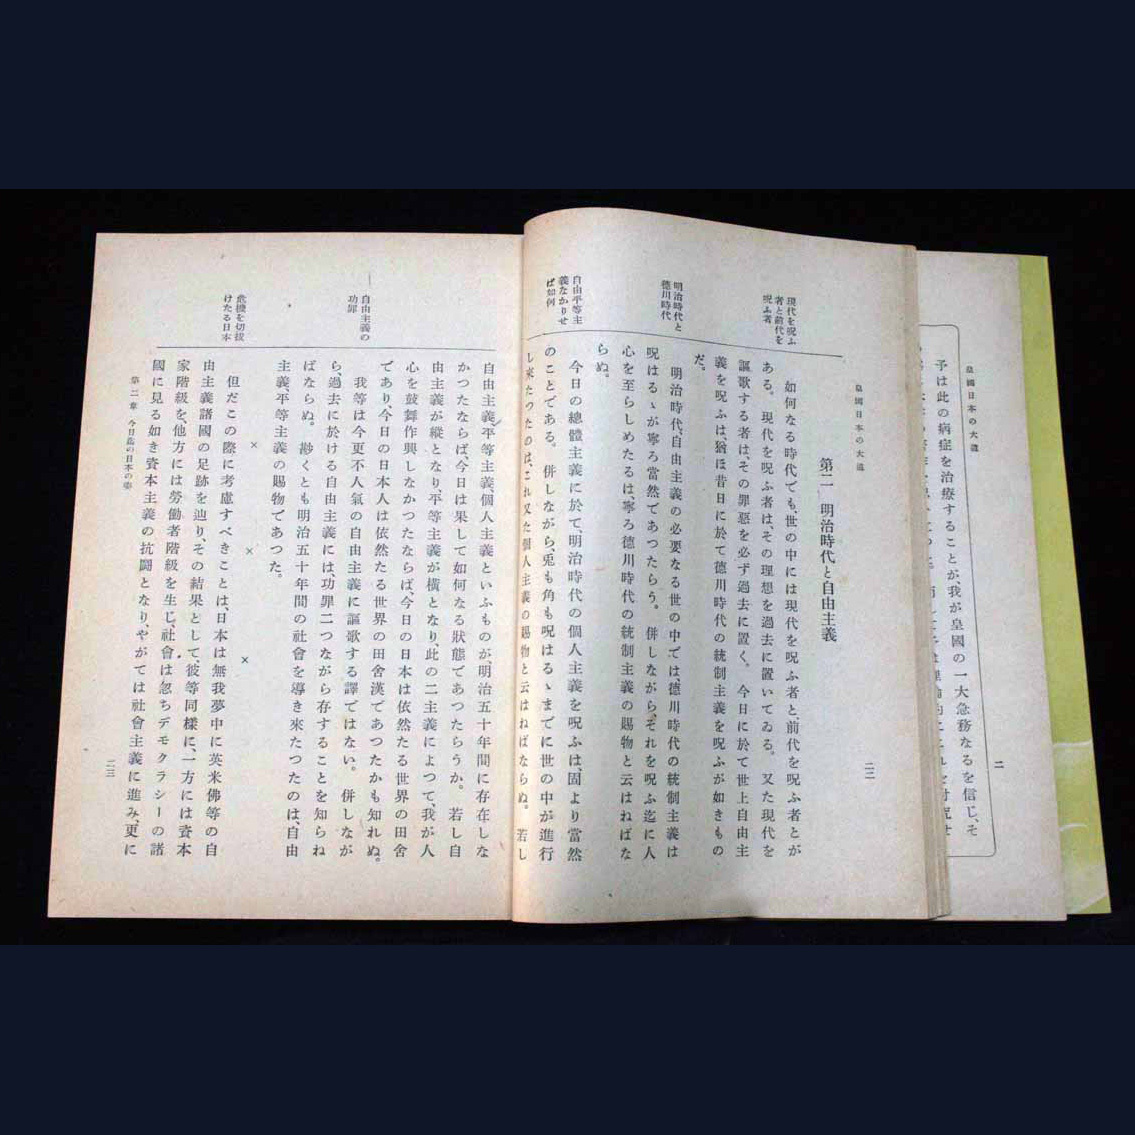 皇國日本の大道
予は此の病症を治療することが、我が皇國の一大急務なるを信じ、そ
二
皇國日本の大道
二二
第二 明治時代と自由主義
現代を呪ふ
者と前代を
呪ふ者
如何なる時代でも、世の中には現代を呪ふ者と前代を呪ふ者とが
ある。現代を呪ふ者は、その理想を過去に置いてゐる。又た現代を
謳歌する者は、その罪惡を必ず過去に置く。今日に於て世上自由主
義を呪ふは、猶ほ昔日に於て德川時代の統制主義を呪ふが如きもの
だ。
明治時代と
德川時代
明治時代、自由主義の必要なる世の中では、德川時代の統制主義は
呪はるゝが寧ろ當然であつたらう。併しながら、それを呪ふ迄に人
心を至らしめたるは、寧ろ德川時代の統制主義の賜物と云はねばな
らぬ。
自由平等主
義なかりせ
ば如何
今日の總體主義に於て、明治時代の個人主義を呪ふは、固より當然
のことである。併しながら、兎も角も呪はるゝまでに世の中が進行
し來たつたのは、これ又た個人主義の賜物と云はねばならぬ。若し
自由主義、平等主義、個人主義といふものが、明治五十年間に存在しな
かつたならば、今日は果して如何なる狀態であつたらうか。若し自
由主義が縱となり平等主義が橫となり、此の二主義によつて、我が人
心を鼓舞作興しなかつたならば、今日の日本は依然たる世界の田舍
であり今日の日本人は依然たる世界の田舍漢であつたかも知れぬ。
自由主義の
功罪
我等は今更不人氣の自由主義に謳歌する譯ではない。併しなが
ら、過去に於ける自由主義には、功罪二つながら存することを知らね
ばならぬ。尠くとも明治五十年間の社會を導き來たつたのは、自由
主義、平等主義の賜物であつた。
× × ×
危機を切拔
けたる日本
但だこの際に考慮すべきことは、日本は無我夢中に英米佛等の自
由主義諸國の足跡を辿り、その結果として、彼等同樣に、一方には資本
家階級を、他方には勞働者階級を生じ、社會は忽ちデモクラシーの諸
國に見る如き資本主義の抗鬪となり、やがては社會主義に進み、更に
第二章 今日迄の日本の姿
二三